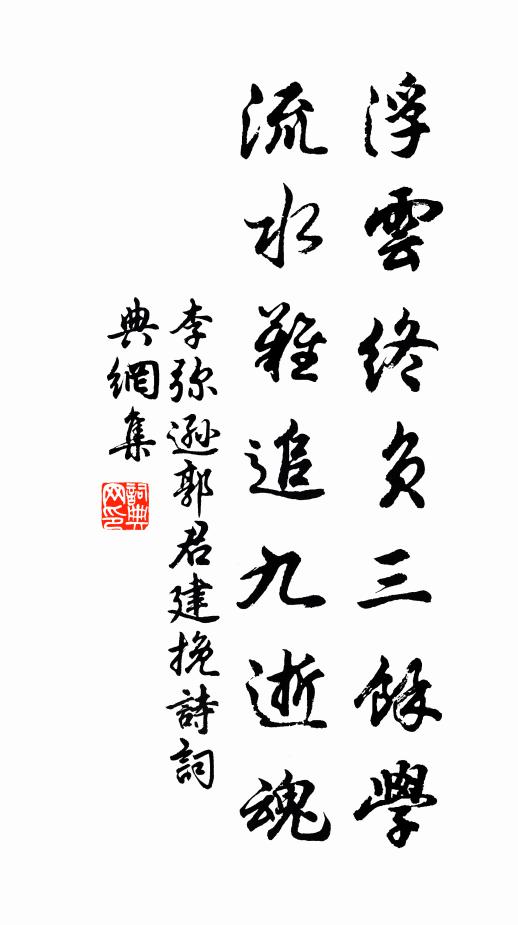 浮雲終負三餘學
流水難追九逝魂
李弥遜郭君建挽詩詞
典網集
詞典
网印